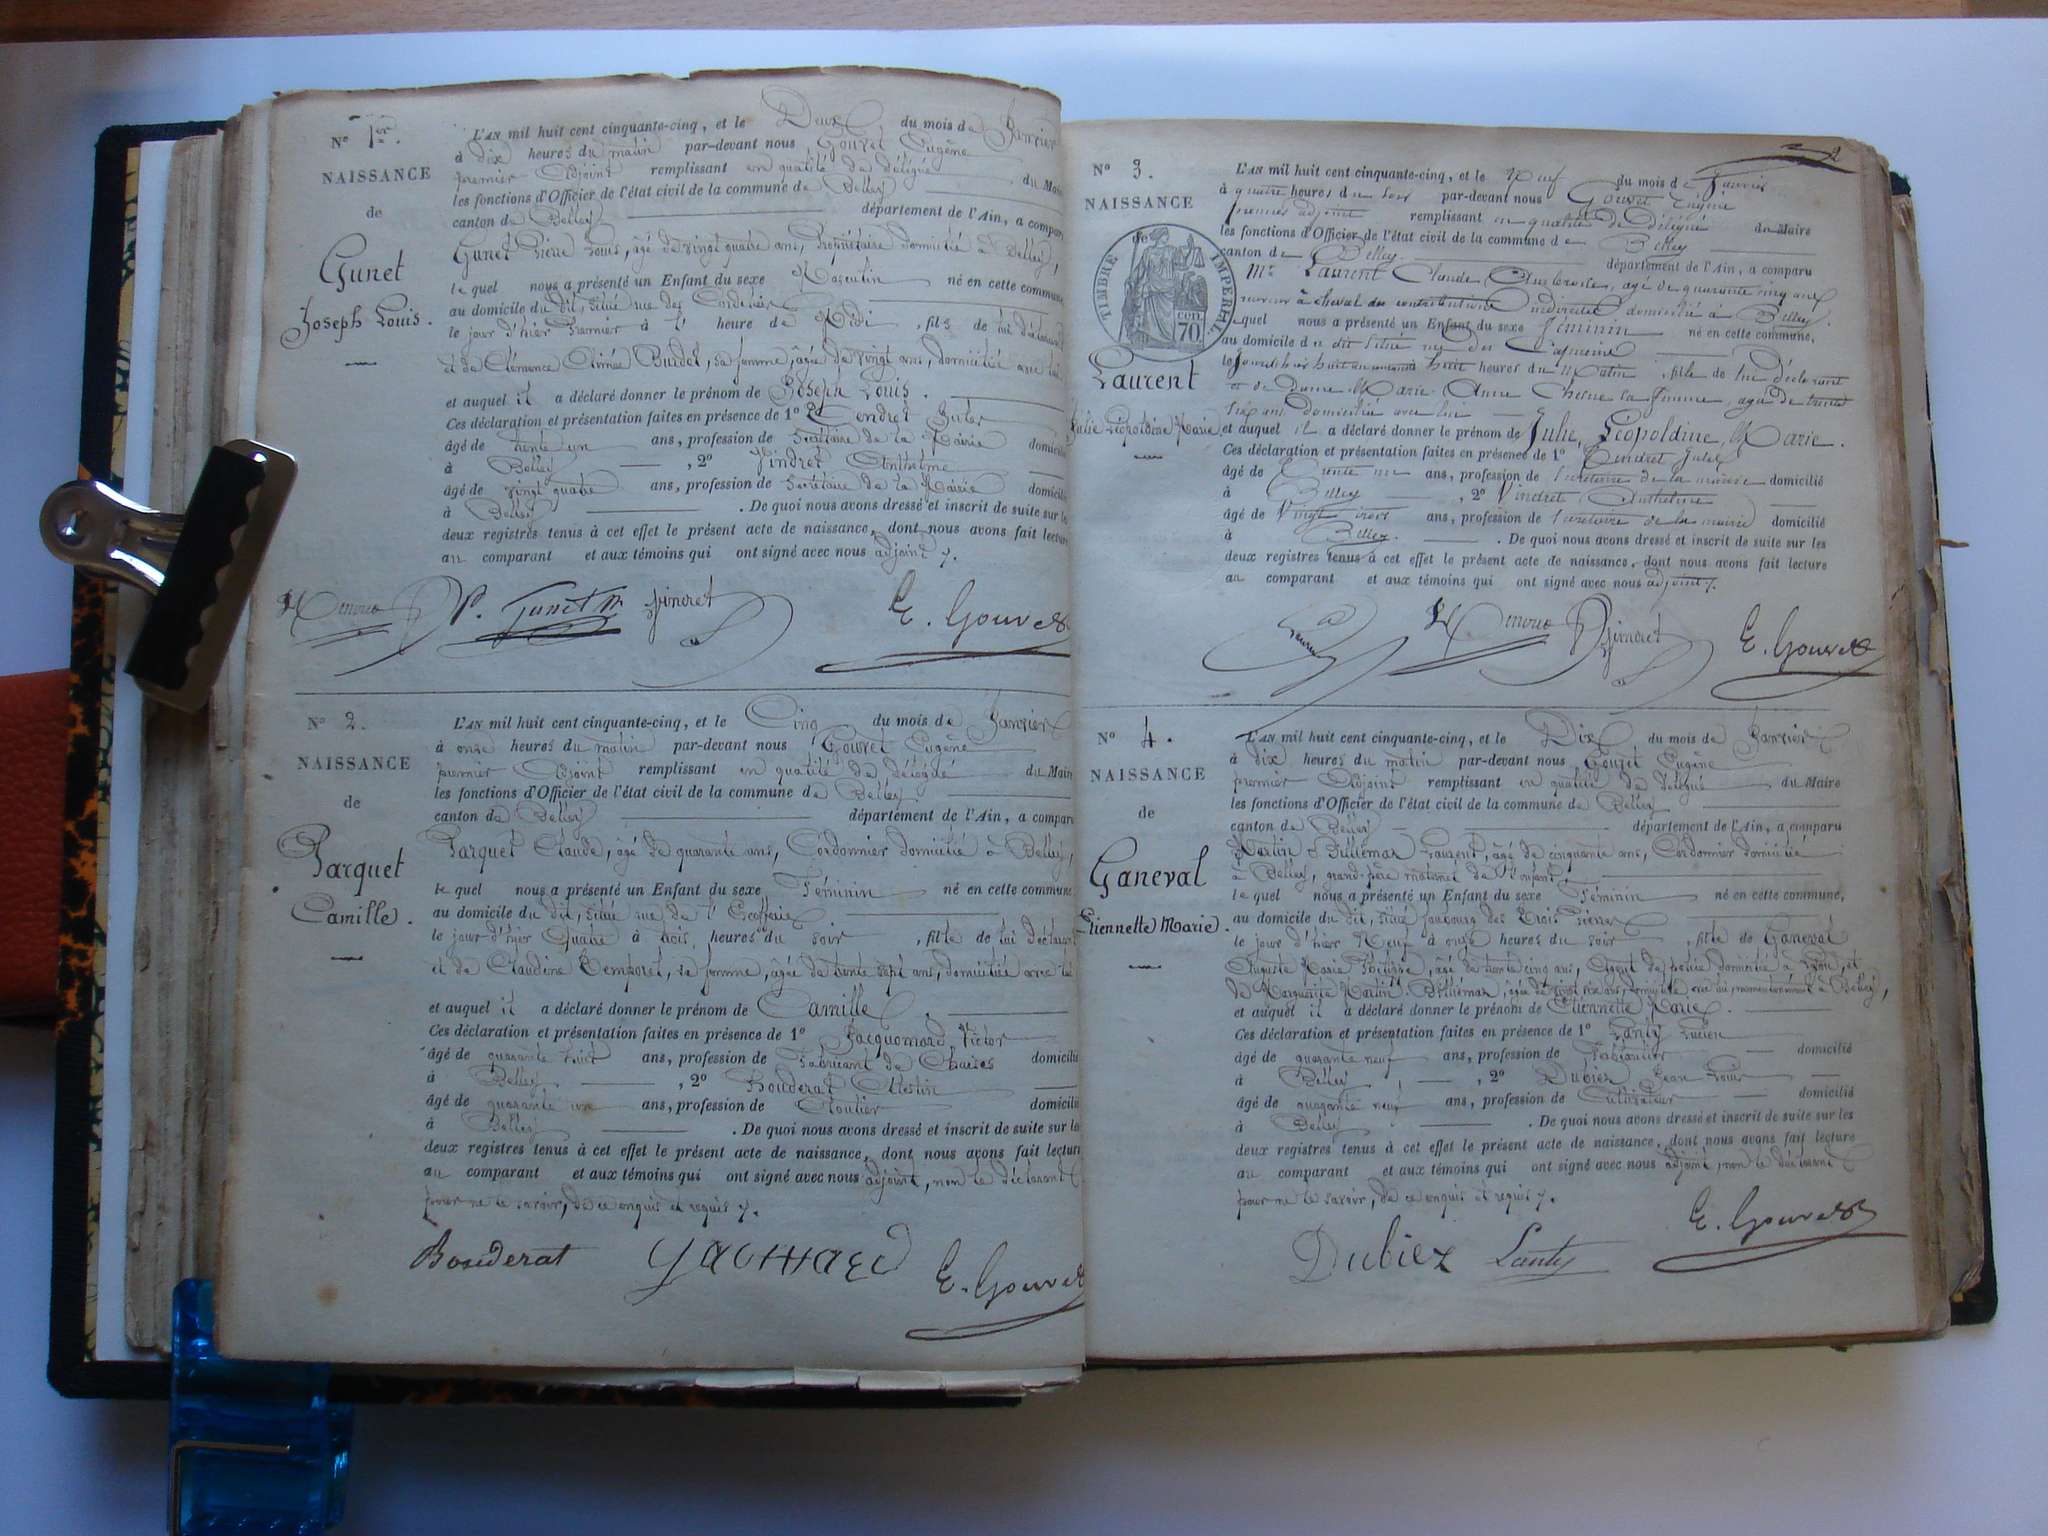 N° 1er.
NAISSANCE
de
Gunet
Joseph Louis.
L'AN mil huit cent cinquante-cinq, et le Deux du mois de Janvier
à dix heures du matin par-devant nous Gouvet Eugène
premier Adjoint remplissant en qualité de délégué du Mair
les fonctions d'Officier de l'état civil de la commune de Belley
canton de Belley département de l'Ain, a compar
Gunet Louis, âgé de vingt quatre ans, Propriétaire domicilié à Belley,
lequel nous a présenté un Enfant du sexe Masculin né en cette commune
au domicile du dit, situé rue des
le jour d'hier Premier à l' heure de Midi, fils de lui déclarant
et de Clémence Aimée Burdet, sa femme, âgée de vingt ans, domiciliée avec lui
et auquel il a déclaré donner le prénom de Joseph Louis.
Ces déclaration et présentation faites en présence de 1° Jules
âgé de trente un ans, profession de Secrétaire de la Mairie domicili
à Belley, 2° Vindret Anthelme
âgé de vingt quatre ans, profession de Secrétaire de la Mairie domicili
à Belley. De quoi nous avons dressé et inscrit de suite sur le
deux registres tenus à cet effet le présent acte de naissance, dont nous avons fait lecture
au comparant et aux témoins qui ont signé avec nous adjoint
P. Gunet Vindret E. Gouvet
N° 2.
NAISSANCE
de
Parquet
Camille.
L'AN mil huit cent cinquante-cinq, et le Cinq du mois de Janvier
à onze heures du matin par-devant nous Gouvet Eugène
premier Adjoint remplissant en qualité de délégué du Mair
les fonctions d'Officier de l'état civil de la commune de Belley
canton de Belley département de l'Ain, a comparu
Parquet Claude, âgé de quarante ans, Cordonnier domicilié à Belley,
lequel nous a présenté un Enfant du sexe Féminin né en cette commune
au domicile du dit, située rue de l'
le jour d'hier Quatre à trois heures du soir, fille de lui déclarant
et de Claudine Temporel, sa femme, âgée de trente sept ans, domiciliée avec lui
et auquel il a déclaré donner le prénom de Camille.
Ces déclaration et présentation faites en présence de 1° Jacquemard Victor
âgé de quarante huit ans, profession de Fabricant de Chaises domicilié
à Belley, 2° Bouderat Célestin
âgé de quarante un ans, profession de Cloutier domicilié
à Belley. De quoi nous avons dressé et inscrit de suite sur le
deux registres tenus à cet effet le présent acte de naissance, dont nous avons fait lecture
au comparant et aux témoins qui ont signé avec nous adjoint, non le déclarant
pour ne le savoir, de ce enquis et requis
Bouderat E. Gouvet
2
N° 3.
NAISSANCE
de
TIMBRE IMPERIAL
70 cen
Laurent
Julie Léopoldine Marie.
L'AN mil huit cent cinquante-cinq, et le Neuf du mois de Janvier
à quatre heures du soir par-devant nous Gouvet Eugène
premier adjoint remplissant en qualité de délégué du Maire
les fonctions d'Officier de l'état civil de la commune de Belley
canton de Belley département de l'Ain, a comparu
Mr Laurent Claude Ambroise, agé de quarante cinq ans
receveur à cheval des contributions indirectes domicilié à Belley.
lequel nous a présenté un Enfant du sexe féminin né en cette commune,
au domicile du dit situé rue des Capucins
le jour d'hier huit huit heures du Matin, fille de lui déclarant
et de dame Marie Anne sa femme, agée de trente
six ans domiciliée avec lui
et auquel il a déclaré donner le prénom de Julie, Léopoldine, Marie.
Ces déclaration et présentation faites en présence de 1° Jules
âgé de Trente un ans, profession de Secrétaire de la mairie domicilié
à Belley, 2° Vindret Anthelme
âgé de Vingt trois ans, profession de Secrétaire de la mairie domicilié
à Belley. De quoi nous avons dressé et inscrit de suite sur les
deux registres tenus à cet effet le présent acte de naissance, dont nous avons fait lecture
au comparant et aux témoins qui ont signé avec nous adjoint
Vindret E. Gouvet
N° 4.
NAISSANCE
de
Ganeval
Etiennette Marie.
L'AN mil huit cent cinquante-cinq, et le Dix du mois de Janvier
à dix heures du matin par-devant nous Gouvet Eugène
premier Adjoint remplissant en qualité de délégué du Maire
les fonctions d'Officier de l'état civil de la commune de Belley
canton de Belley département de l'Ain, a comparu
Martin Billiemaz Laurent, âgé de cinquante ans, Cordonnier domicilié
à Belley, grand-père maternel de l'enfant,
lequel nous a présenté un Enfant du sexe Féminin né en cette commune,
au domicile du dit, situé faubourg des Trois Pierres
le jour d'hier Neuf à onze heures du soir, fille de Ganeval
Auguste Marie Philippe, âgé de trente cinq ans, Agent de police domicilié à Lyon, et
de Marguerite Martin-Billiemaz, âgée de vingt ans, domiciliée avec lui, momentanément à Belley,
et auquel il a déclaré donner le prénom de Etiennette Marie.
Ces déclaration et présentation faites en présence de 1° Lanty Lucien
âgé de quarante neuf ans, profession de Ferblantier domicilié
à Belley, 2° Dubiez Jean Louis
âgé de quarante neuf ans, profession de Cultivateur domicilié
à Belley. De quoi nous avons dressé et inscrit de suite sur les
deux registres tenus à cet effet le présent acte de naissance, dont nous avons fait lecture
au comparant et aux témoins qui ont signé avec nous adjoint, non le déclarant
pour ne le savoir, de ce enquis et requis
Dubiez Lanty E. Gouvet